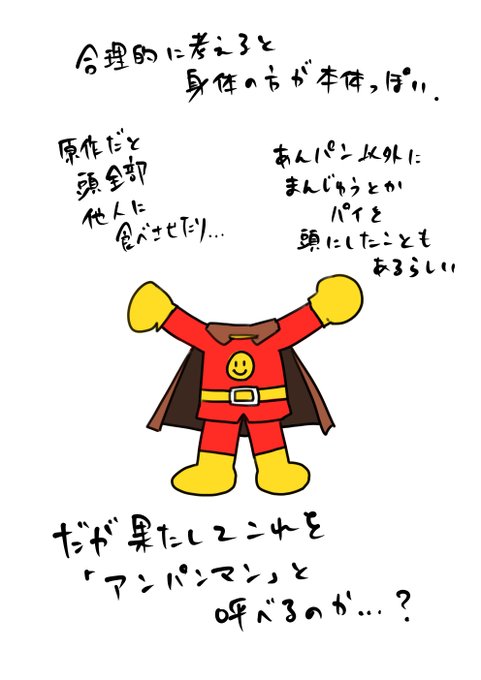 合理的に考えると
身体の方が本体っぽい.
原作だと
頭全部
他人に
食べさせたり...
あんパン以外に
まんじゅうとか
パイを
頭にしたことも
あるらしい
だが果たしてこれを
「アンパンマン」と
呼べるのか...?